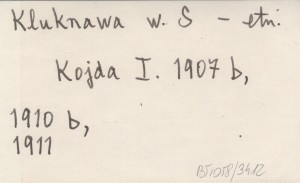 Kluknawa w. S - etn.
Kojda I. 1907 b,
1910 b,
1911
BT1058/3412